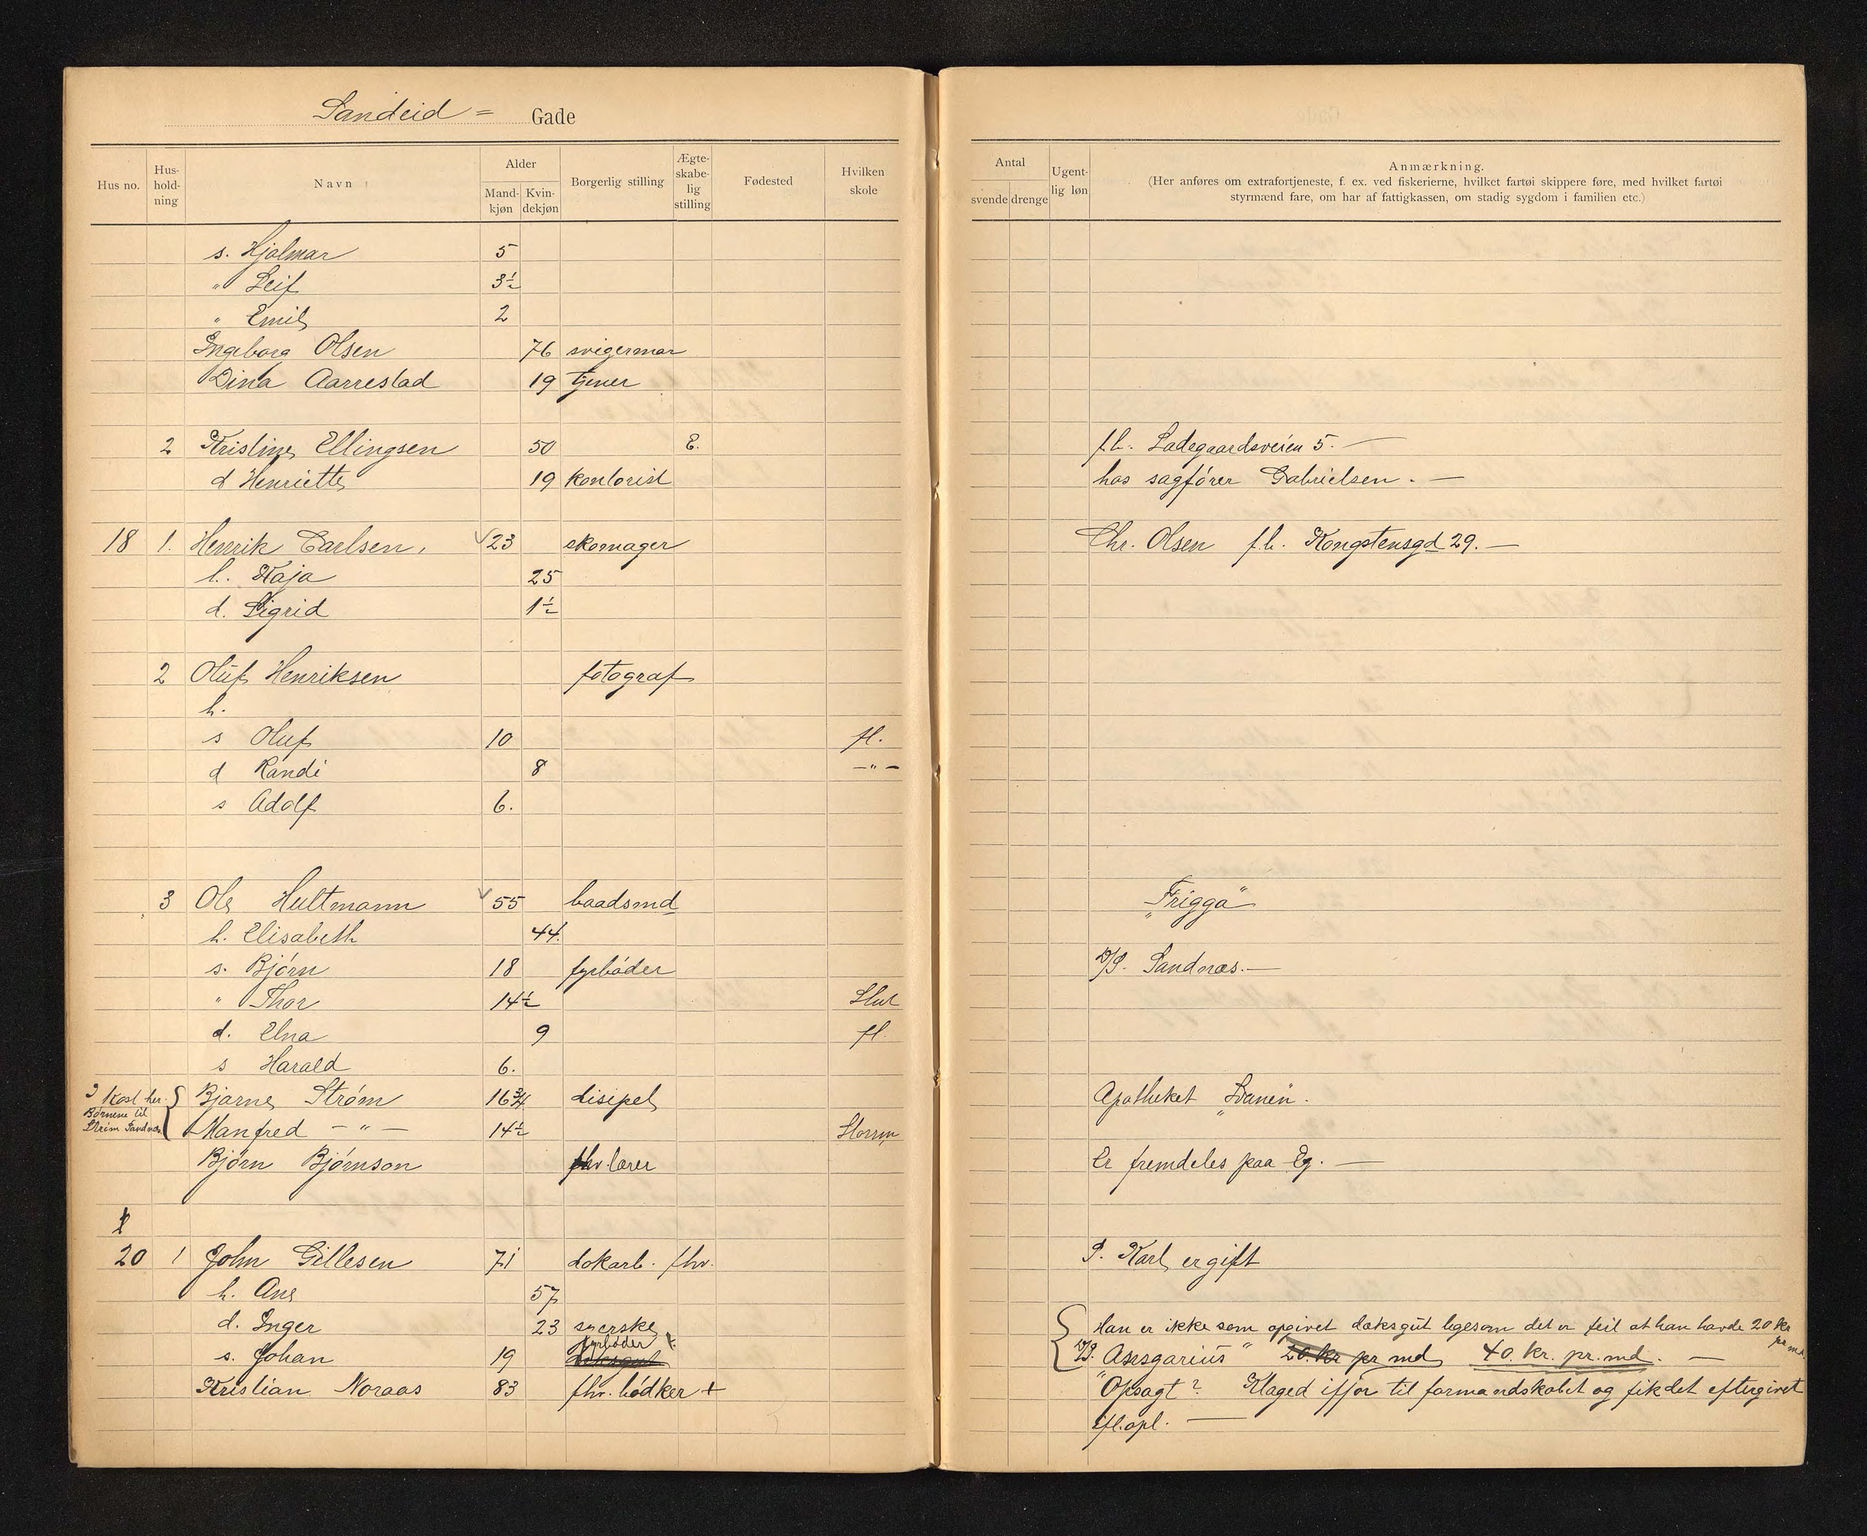 Sandeid = Gade
Hus no. Hus-hold-ning Navn Alder Mand-kjøn Kvin-dekjøn Borgerlig stilling Ægte-skabe-lig stilling Fødested Hvilken skole
Antal svende drenge Ugent-lig løn Anmærkning.
(Her anføres om extrafortjeneste, f. ex. ved fiskerierne, hvilket fartøi skippere føre, med hvilket fartøi
styrmænd fare, om har af fattigkassen, om stadig sygdom i familien etc.)
s. Hjalmar 5
" Leif 3½
" Emil 2
Ingeborg Olsen 76 svigermor
Dina Aarrestad 19 tjener
2 Kristine Ellingsen 50 E. f.h. Ladegaardsveien 5. —
d Henriette 19 kontorist hos sagfører Gabrielsen. —
18 1. Henrik Carlsen. 23 skomager Chr. Olsen f.h. Kongstensgd 29. —
h. Kaja 25
d. Sigrid 1½
2 Oluf Henriksen fotograf
h.
s Oluf 10 fl.
d Randi 8 —"—
s Adolf 6.
3 Ole Hultmann 55 baadsmd "Frigga"
h. Elisabeth 44.
s. Bjørn 18 fyrbøder D/S. Sandnæs. —
" Thor 14½ Slut
d. Elna 9 fl.
s Harald 6.
I kost her. Bjarne Strøm 16¾ disipel Apotheket "Svanen".
Børnene til
Strøm Sandnæs Manfred — " — 14½
Bjørn Bjørnson lærer Er fremdeles paa Eg. —
20 1 John Gillesen 71 dokarb. fhv. S. Karl er gift
h. Ane 57
d. Inger 23 syerske Han er ikke som opgivet dæksgut ligesom det er feil at han havde 20 kr pr md
s. Johan 19 fyrbøder D/S. "Asgarius" 20. kr pr md 40. kr. pr. md. —
Kristian Noraas 83 fhv. bødker + "Opsagt? Klaged ifjor til formandskabet og fik det eftergivet
ifl. opl. —